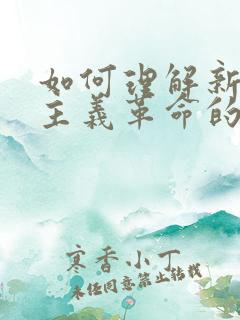 如何理解新
主义革命的
寒香小丁
未经同意禁止转载